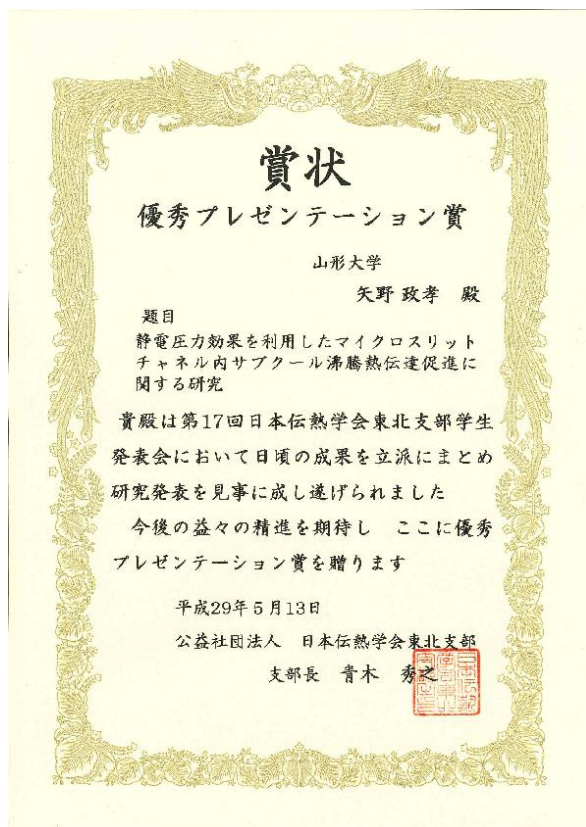 賞状
優秀プレゼンテーション賞
山形大学
矢野 政孝 殿
題目
静電圧力効果を利用したマイクロスリット
チャネル内サブクール沸騰熱伝達促進に
関する研究
貴殿は第17回日本伝熱学会東北支部学生
発表会において日頃の成果を立派にまとめ
研究発表を見事に成し遂げられました
今後の益々の精進を期待し ここに優秀
プレゼンテーション賞を贈ります
平成29年5月13日
公益社団法人 日本伝熱学会東北支部
支部長 青木 秀之